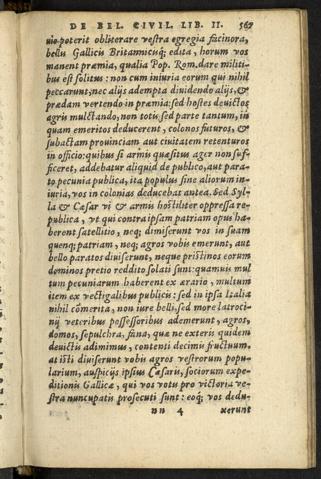 DE BEL. CIVIL. LIB. II. 567
uio poterit obliterare vestra egregia facinora,
bellis Gallicis Britannicisq; edita, horum vos
manent præmia, qualia Pop. Rom. dare militi-
bus est solitus: non cum iniuria eorum qui nihil
peccarunt; nec alijs adempta diuidendo alijs, &
prædam vertendo in præmia: sed hostes deuictos
agris mulctando, non totis sed parte tantum, in
quam emeritos deducerent, colonos futuros, &
subactam prouinciam aut ciuitatem retenturos
in officio: quibus si armis quæsitus ager non suf-
ficeret, addebatur aliquid de publico, aut para-
to pecunia publica, ita populus sine aliorum in-
iuria, vos in colonias deducebat antea. Sed Syl-
la & Cæsar vi & armis hostiliter oppressa re-
publica, vt qui contra ipsam patriam opus ha-
berent satellitio, neq; dimiserunt vos in suam
quenq; patriam, neq; agros vobis emerunt, aut
bello paratos diuiserunt, neque pristinos eorum
dominos pretio reddito solati sunt: quamuis mul
tum pecuniarum haberent ex ærario, multum
item ex vectigalibus publicis: sed in ipsa Italia
nihil cōmerita, non iure belli, sed more latroci-
nij veteribus possessoribus ademerunt, agros,
domos, sepulchra, fana, quæ ne exteris quidem
deuictis adimimus, contenti decimis fructuum,
at isti diuiserunt vobis agros vestrorum popu-
larium, auspicijs ipsius Cæsaris, sociorum expe-
ditionis Gallicæ, qui vos votu pro victoria ve-
stra nuncupatis prosecuti sunt: eoq; vos dedu-
nn 4 xerunt